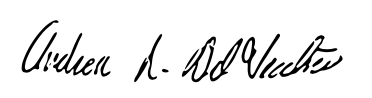 Andrea R. Del Vecchio